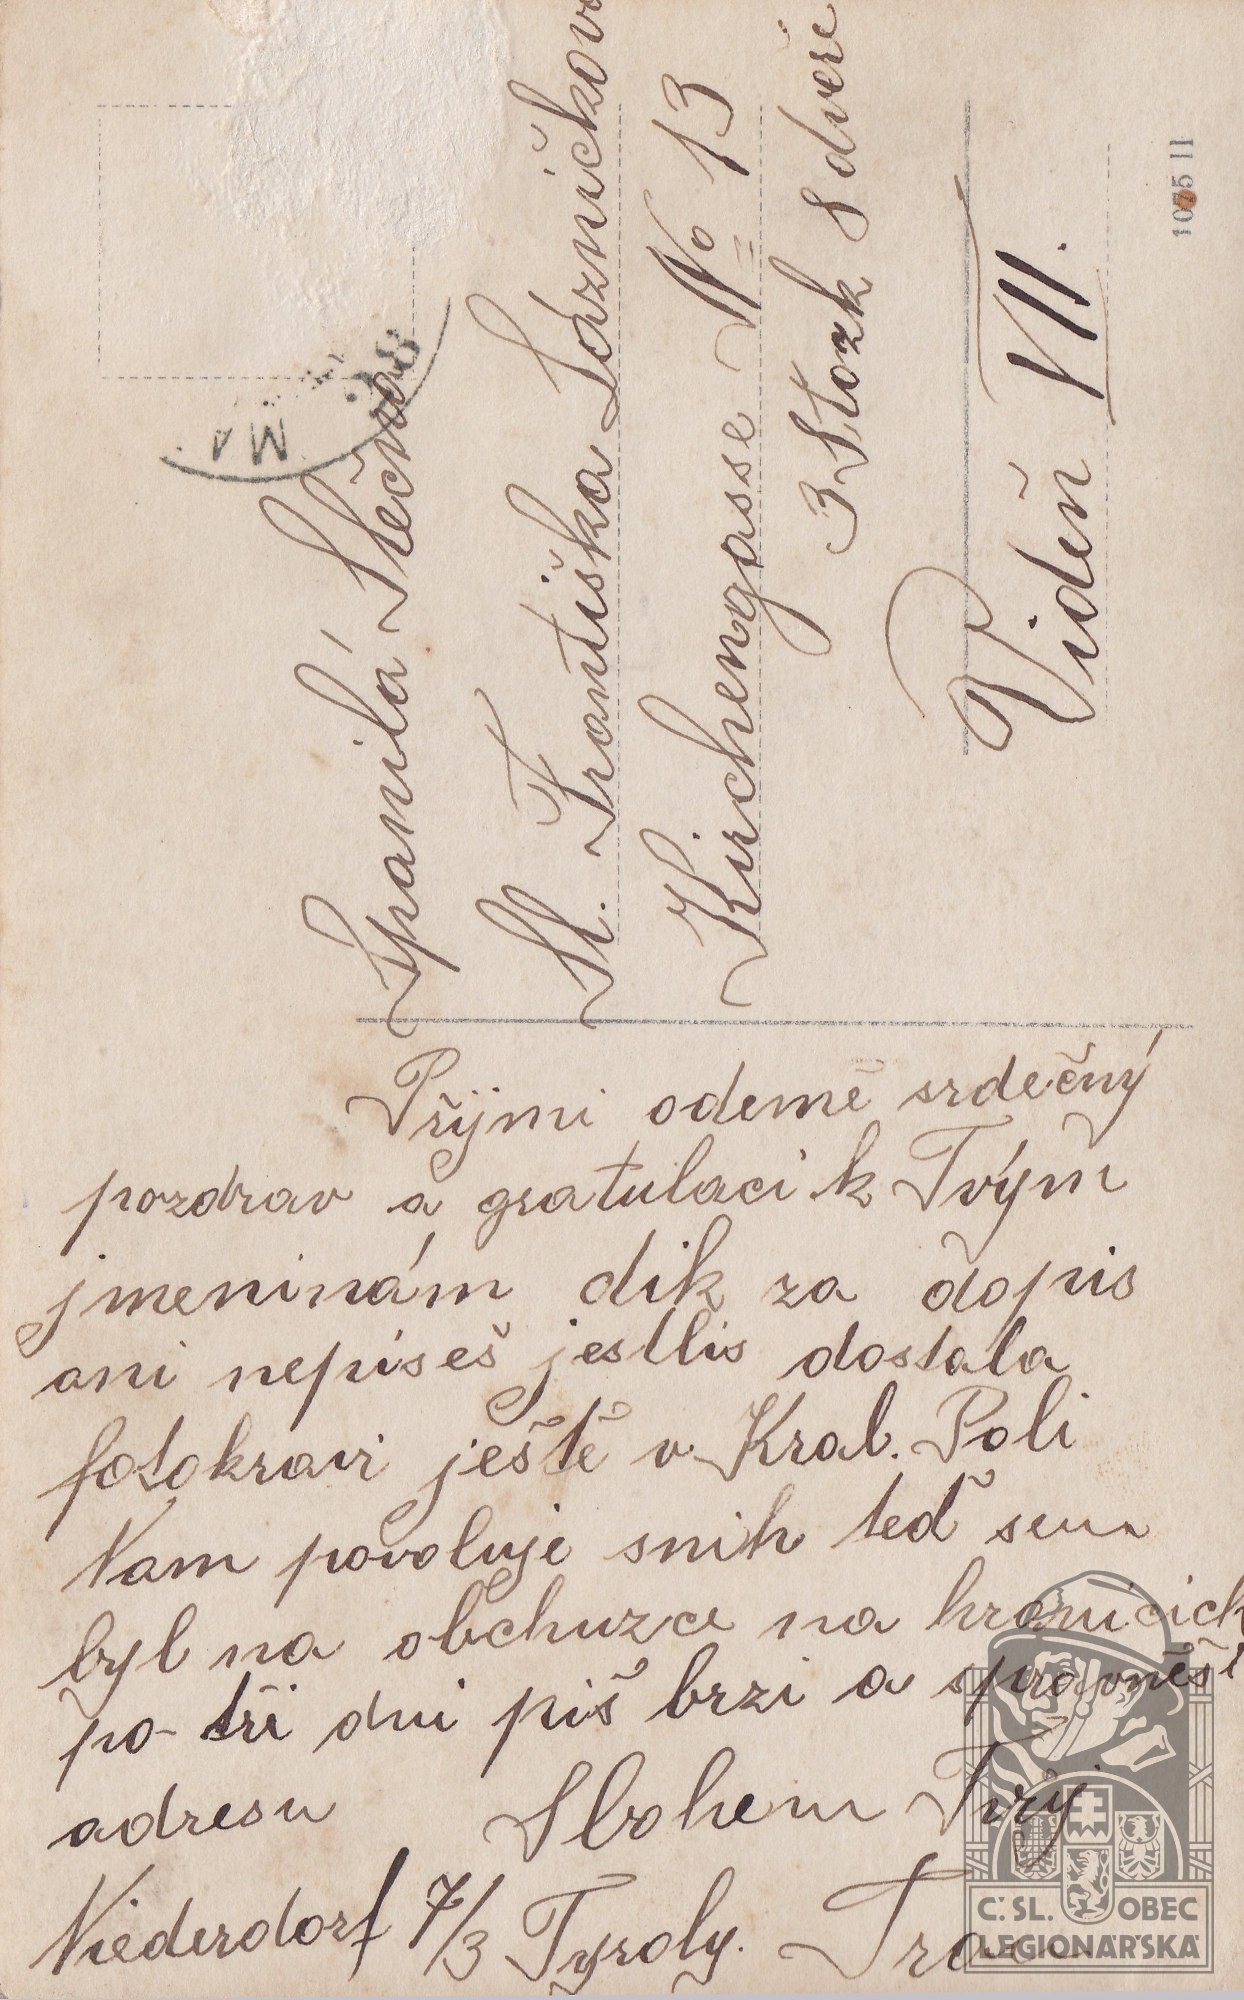 Spanilá Slečna
Sl. Františka Lázničkov
Kirchengasse No 13
3 Stozk 8 dveře
Vídeň VII.
1075 II
Přijmi odemě srdečný
pozdrav a gratulaci k Tvým
jmeninám dik za dopis
ani nepíseš jestlis dostala
fotokravi ještě v Kral. Poli
Nam povoluje snih teď sem
byl na obchuzce na hranicich
po tři dni piš brzi a spravněší
adresu Sbohem Tvůj
Niederdorf 7/3 Tyroly.
Č. SL. OBEC
LEGIONÁŘSKÁ